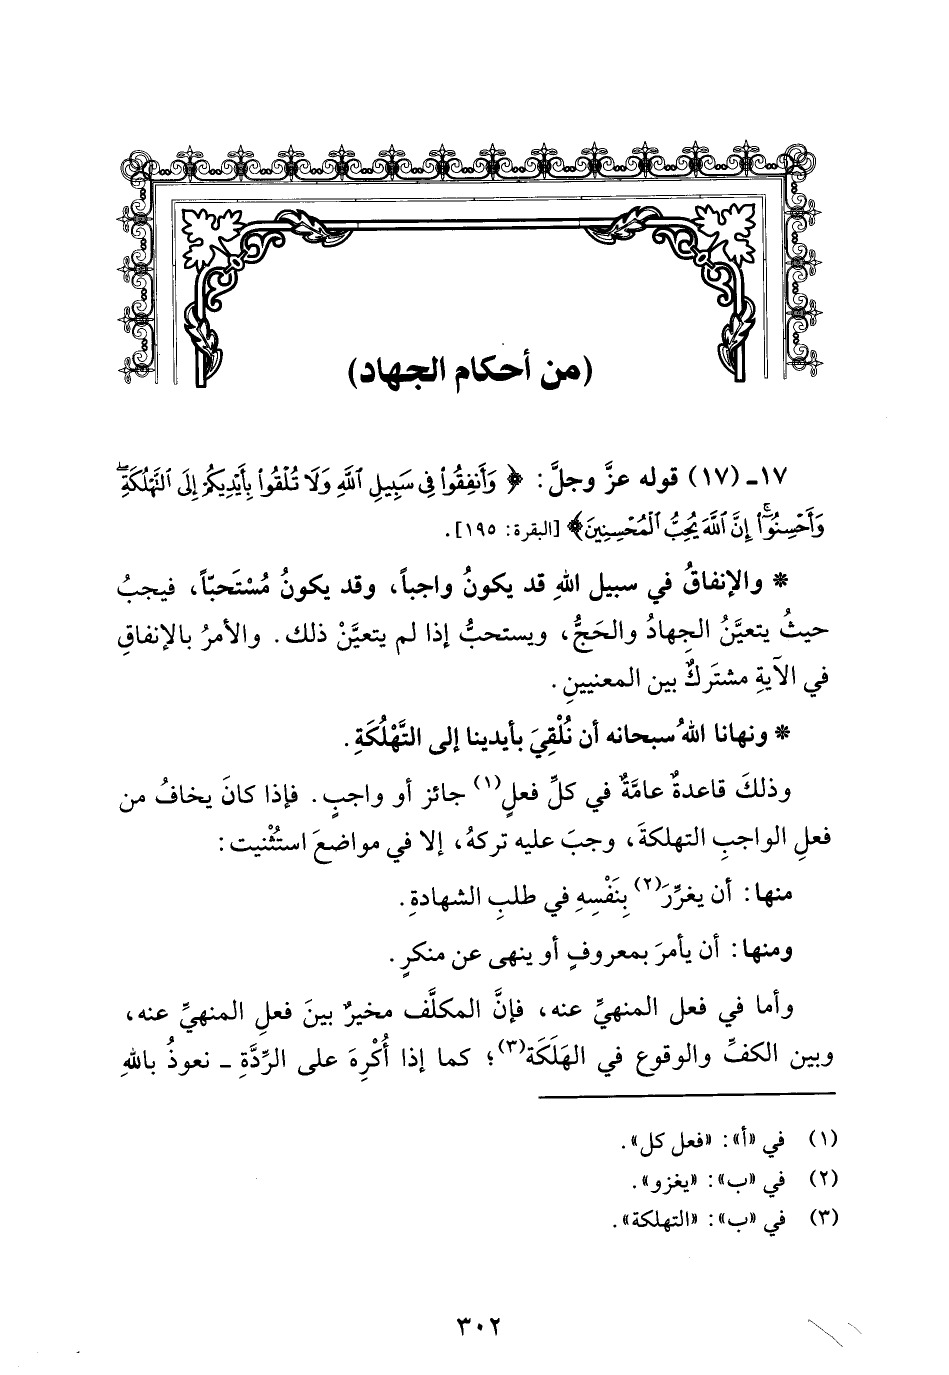 (من أحكام الجهاد)
١٧ـ (١٧) قوله عزَّ وجلَّ: ﴿ وَأَنفِقُوا۟ فِى سَبِيلِ ٱللَّهِ وَلَا تُلْقُوا۟ بِأَيْدِيكُمْ إِلَى ٱلتَّهْلُكَةِ ۛ
وَأَحْسِنُوٓا۟ ۛ إِنَّ ٱللَّهَ يُحِبُّ ٱلْمُحْسِنِينَ﴾ [البقرة: ١٩٥].
* والإنفاقُ في سبيل اللهِ قد يكونُ واجباً، وقد يكونُ مُسْتَحبّاً، فيجبُ
حيثُ يتعيَّنُ الجِهادُ والحَجُّ، ويستحبُّ إذا لم يتعيَّنْ ذلك. والأمرُ بالإنفاقِ
في الآيةِ مشتركٌ بين المعنيينِ.
* ونهانا اللهُ سبحانه أن نُلْقِيَ بأيدينا إلى التَّهْلُكَةِ.
وذلكَ قاعدةٌ عامَّةٌ في كلِّ فعلٍ(١) جائز أو واجبٍ. فإذا كانَ يخافُ من
فعلِ الواجبِ التهلكةَ، وجبَ عليه تركهُ، إلا في مواضعَ استُثْنيت:
منها: أن يغرِّرَ(٢) بِنَفْسِهِ في طلبِ الشهادةِ.
ومنها: أن يأمرَ بمعروفٍ أو ينهى عن منكرٍ.
وأما في فعل المنهيِّ عنه، فإنَّ المكلَّف مخيرٌ بينَ فعلِ المنهيِّ عنه،
وبين الكفِّ والوقوع في الهَلَكَة(٣)؛ كما إذا أُكْرِهَ على الرِّدَّةِ ـ نعوذُ باللهِ
(١) في «أ»: «فعل كل».
(٢) في «ب»: «يغزو».
(٣) في «ب»: «التهلكة».
٣٠٢